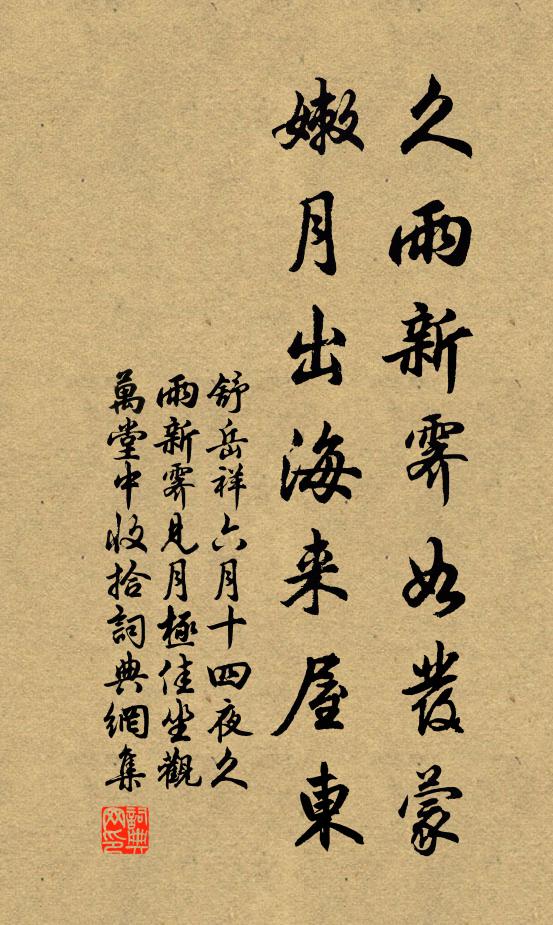 久雨新霽如發蒙
嫩月出海来屋東
舒岳祥六月十四夜久
雨新霽見月極佳坐觀
萬堂中收拾詞典網集
詞典网印